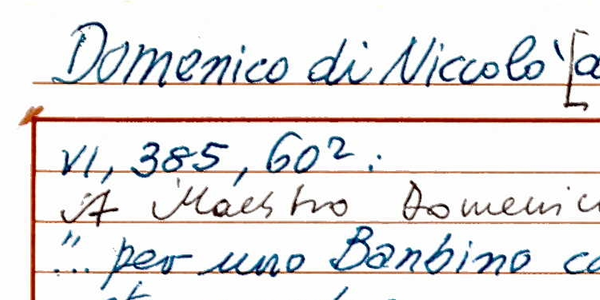 Domenico di Niccolò [a
VI, 385, 60²:
A Maestro Domenic
"... per uno Banbino co